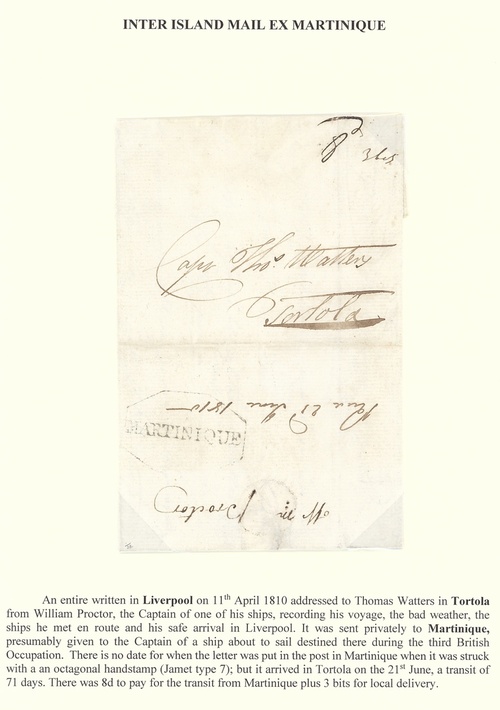 INTER ISLAND MAIL EX MARTINIQUE
8d 3bts
Capt Thos. Watters
Tortola
21 June 1810
MARTINIQUE
Wm Proctor
An entire written in Liverpool on 11th April 1810 addressed to Thomas Watters in Tortola
from William Proctor, the Captain of one of his ships, recording his voyage, the bad weather, the
ships he met en route and his safe arrival in Liverpool. It was sent privately to Martinique,
presumably given to the Captain of a ship about to sail destined there during the third British
Occupation. There is no date for when the letter was put in the post in Martinique when it was struck
with a an octagonal handstamp (Jamet type 7); but it arrived in Tortola on the 21st June, a transit of
71 days. There was 8d to pay for the transit from Martinique plus 3 bits for local delivery.